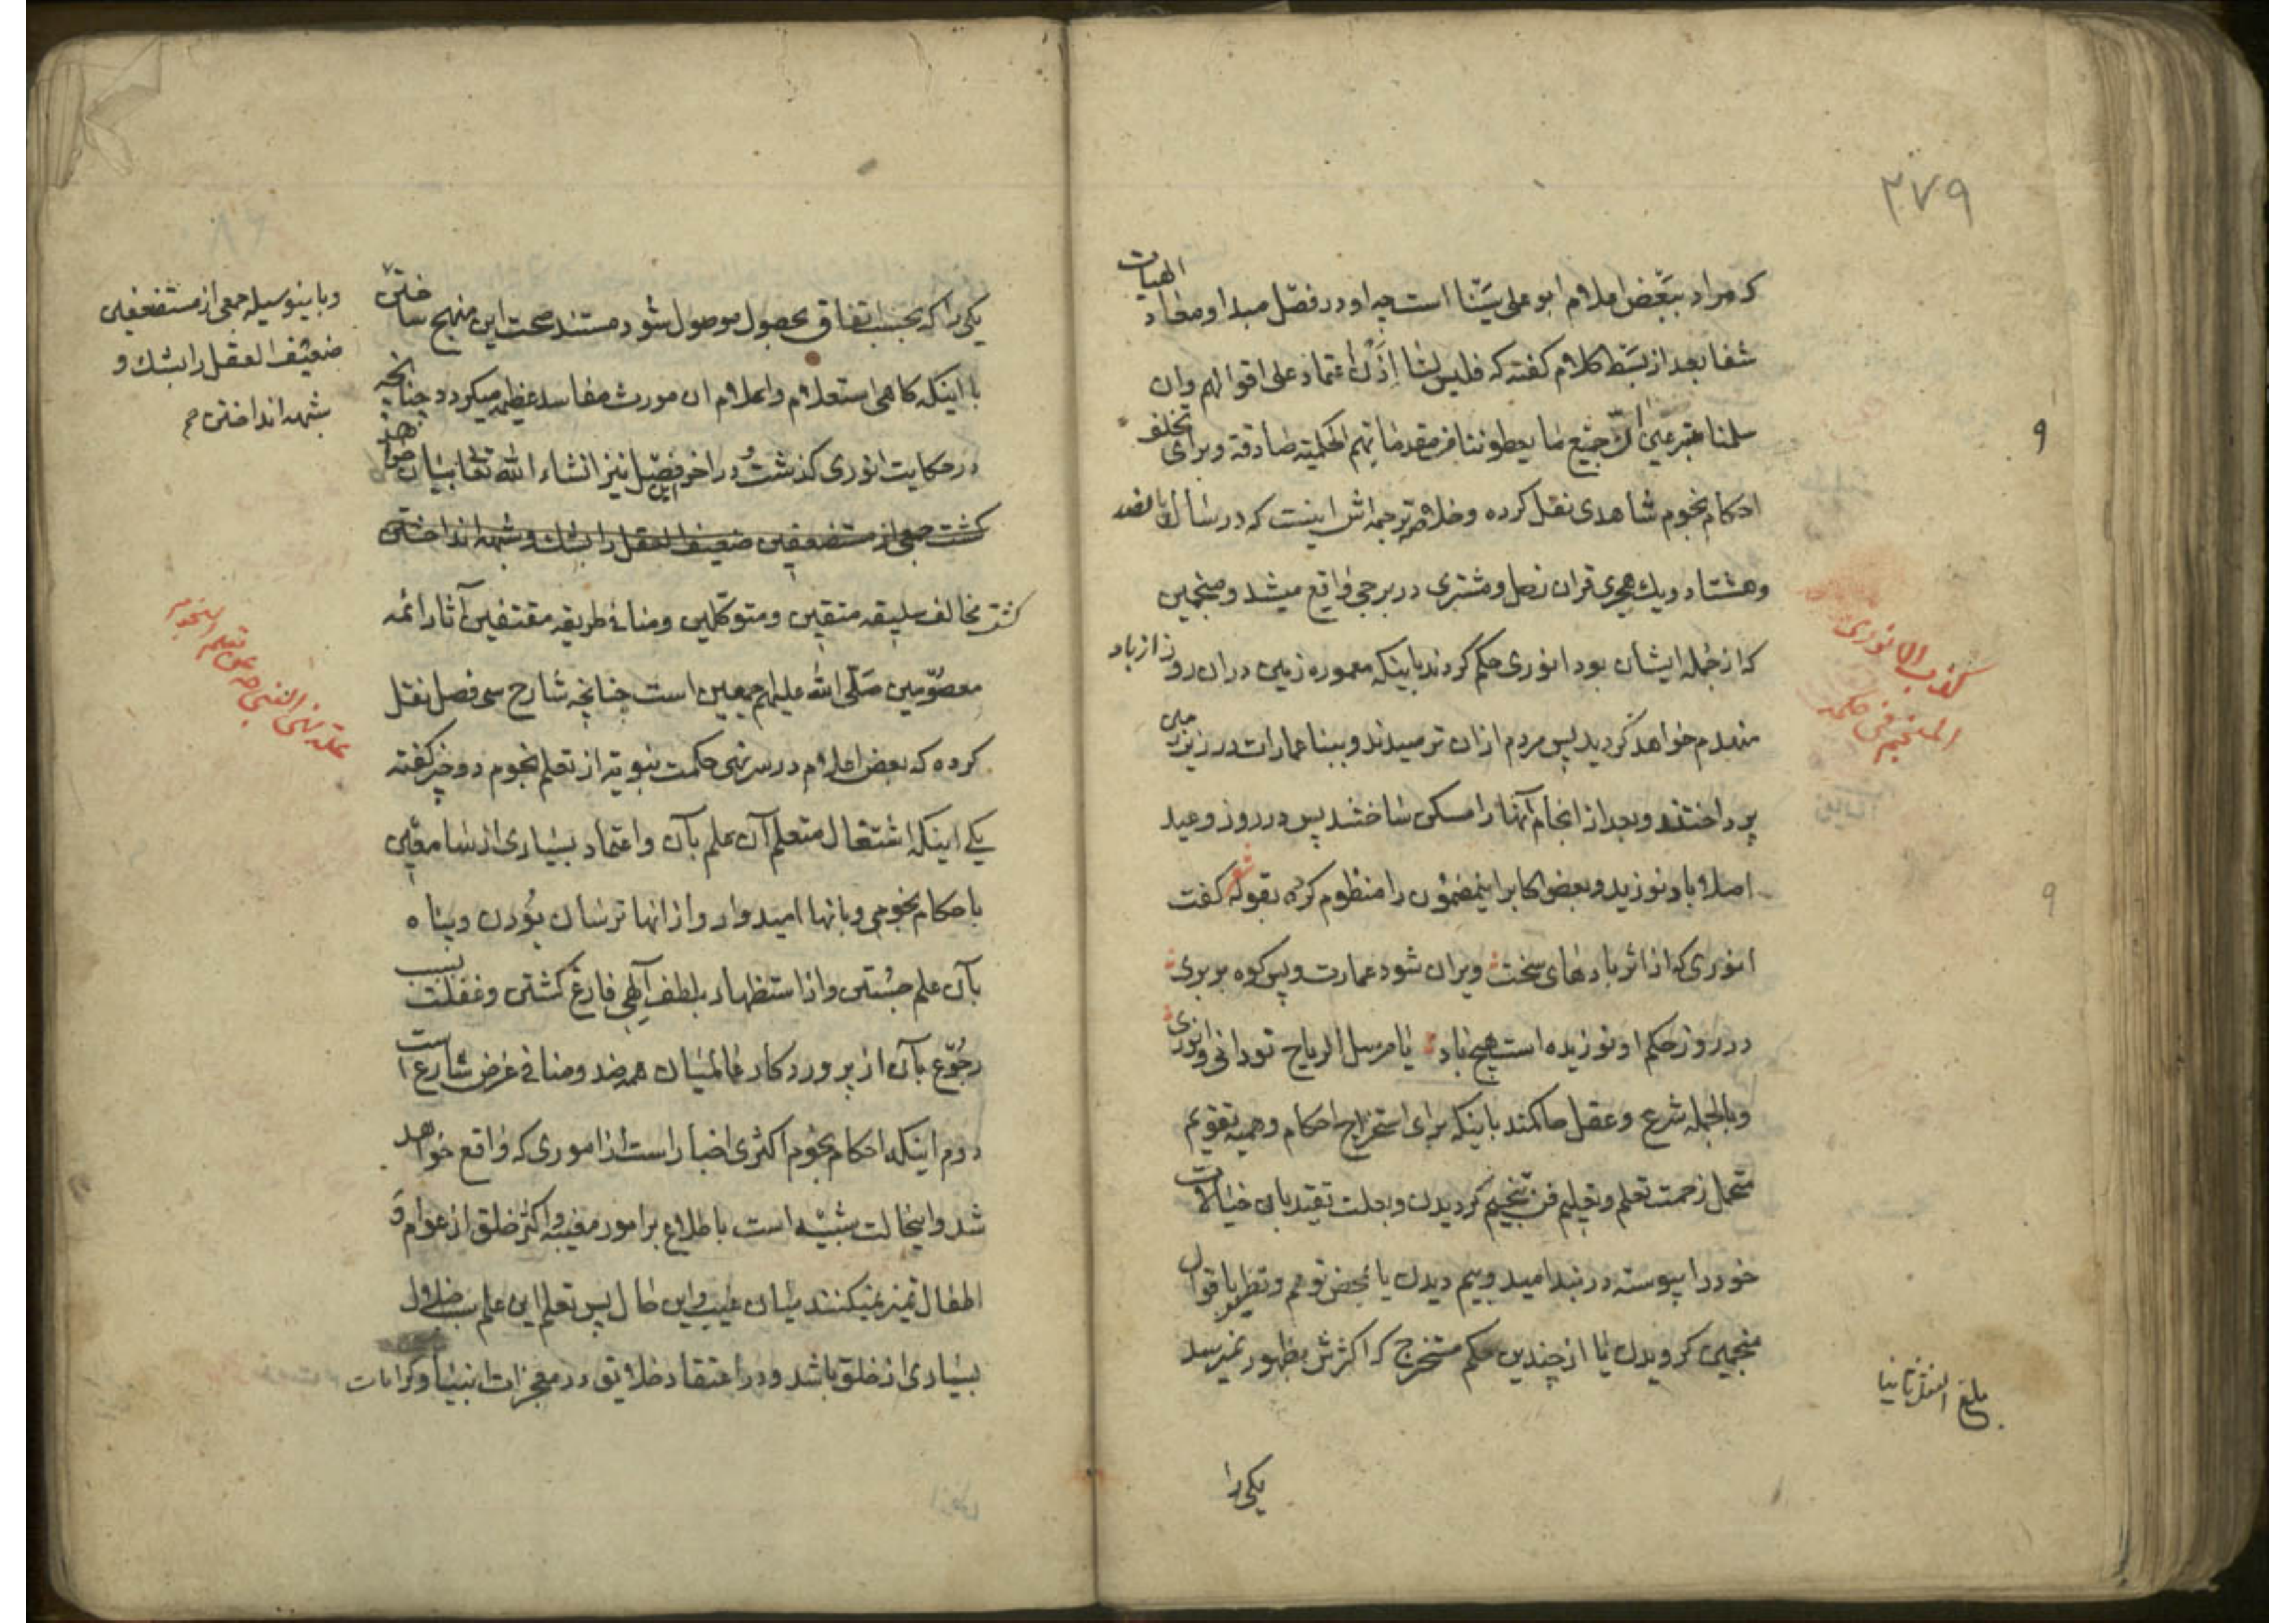 ۲۷۹
که مراد ببعض اعلام ابو علی سینا است چه او در فصل مبدا و معاد الهیات
شفا بعد از بسط کلام گفته که فلیس لنا اذن اعتماد علی اقوالهم وان
سلمنا متبرعین ان جمیع ما یعطوننا من مقدماتهم الحکمیة صادقة و برای تخلف
احکام نجوم شاهدی نقل کرده و خلاصه ترجمه‌اش اینست که در سال پانصد
و هشتاد و یک هجری قران زحل و مشتری در برجی واقع میشد و منجمین
که از جمله ایشان بود انوری حکم کردند باینکه معموره زمین در ان روز از باد
منهدم خواهد گردید پس مردم از ان ترسیدند و ببنا عمارات در زیر زمین
پرداختند و بعد از انجام آنها را مسکن ساختند پس در روز وعید
اصلا باد نوزید و بعض اکابر اینمضمون را منظوم کرده بقوله شعر گفت
انوری که از اثر بادهای سخت ویران شود عمارت و پس کوه بر بری
در روز حکم او نوزیده است هیچ باد یا مرسل الریاح تو دانی و انوری
و بالجمله شرع و عقل حاکمند باینکه برای استخراج احکام وهمیه تقویم
متحمل زحمت تعلم و تعلیم فن تنجیم گردیدن و بعلت تقید بان خیالات
خود را پیوسته در بند امید و بیم دیدن یا بمحض توهم و تطیر باقوال
منجمین گرویدن یا از چندین حکم مستخرج که اکثرش بظهور نمیرسد
یکی را
کذب الانوری
المنجم فی حکمه
بلغ المقر ثانیا
یکی را که بحسب اتفاق بحصول موصول شود مستند صحت این منهج ساختن
با اینکه گاهی استعلام و اعلام ان مورث مفاسد عظیمه میگردد چنانچه
در حکایت انوری گذشت و در اخر این فصل نیز انشاء الله تعالی بیان خواهد
گشت جمعی از مستضعفین ضعیف العقل را بشک و شبهه انداختن
گشت مخالف سلیقه متقین و متوکلین و منافی طریقه مقتفین آثار ائمه
معصومین صلی الله علیهم اجمعین است چنانچه شارح سی فصل نقل
کرده که بعض اعلام در سر نهی حکمت نبویه از تعلم نجوم دو خبر گفته
یکی اینکه اشتغال متعلم آن علم بآن و اعتماد بسیاری از سامعین
باحکام نجومی و بانها امیدوار و از انها ترسان بودن و پناه
بآن علم جستن و از استظهار بلطف آلهی فارغ گشتن و غفلت بسبب
رجوع بآن از پروردگار عالمیان همه ضد و منافی غرض شارع است
دوم اینکه احکام نجوم اکثری اخبار است از اموری که واقع خواهد
شد و اینحالت شبیه است باطلاع بر امور مغیبه و اکثر خلق از عوام و
اطفال تمیز نمیکنند میان غیب و این حال پس تعلم این علم سبب ضلال
بسیاری از خلق باشد و در اعتقاد خلایق در معجزات انبیا و کرامات
و باینوسیله جمعی از مستضعفین
ضعیف العقل را بشک و
شبهه انداختن
علة نهی النبی ص عن تعلم النجوم